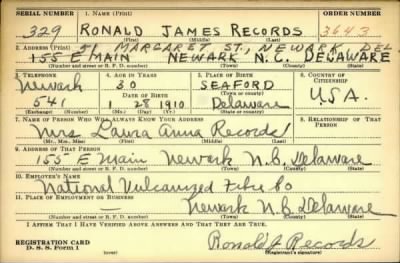 SERIAL NUMBER 1. NAME (Print) ORDER NUMBER
329 RONALD JAMES RECORDS 3643
(First) (Middle) (Last)
2. ADDRESS (Print) 51 MARGARET ST., NEWARK, DEL
155 E MAIN NEWARK N.C. DELAWARE
(Number and street or R. F. D. number) (Town) (County) (State)
3. TELEPHONE 4. AGE IN YEARS 5. PLACE OF BIRTH 6. COUNTRY OF CITIZENSHIP
Newark 30 SEAFORD
DATE OF BIRTH (Town or county) U.S.A.
541 1 28 1910 Delaware
(Exchange) (Number) (Mo.) (Day) (Yr.) (State or country)
7. NAME OF PERSON WHO WILL ALWAYS KNOW YOUR ADDRESS 8. RELATIONSHIP OF THAT PERSON
Mrs Laura Anna Records
(Mr., Mrs., Miss) (First) (Middle) (Last)
9. ADDRESS OF THAT PERSON
155 E Main Newark N.C. Delaware
(Number and street or R. F. D. number) (Town) (County) (State)
10. EMPLOYER'S NAME
National Vulcanized Fibre Co
11. PLACE OF EMPLOYMENT OR BUSINESS
— Newark N.C Delaware
(Number and street or R. F. D. number) (Town) (County) (State)
I AFFIRM THAT I HAVE VERIFIED ABOVE ANSWERS AND THAT THEY ARE TRUE.
REGISTRATION CARD Ronald J Records
D. S. S. Form 1 (Registrant's signature)